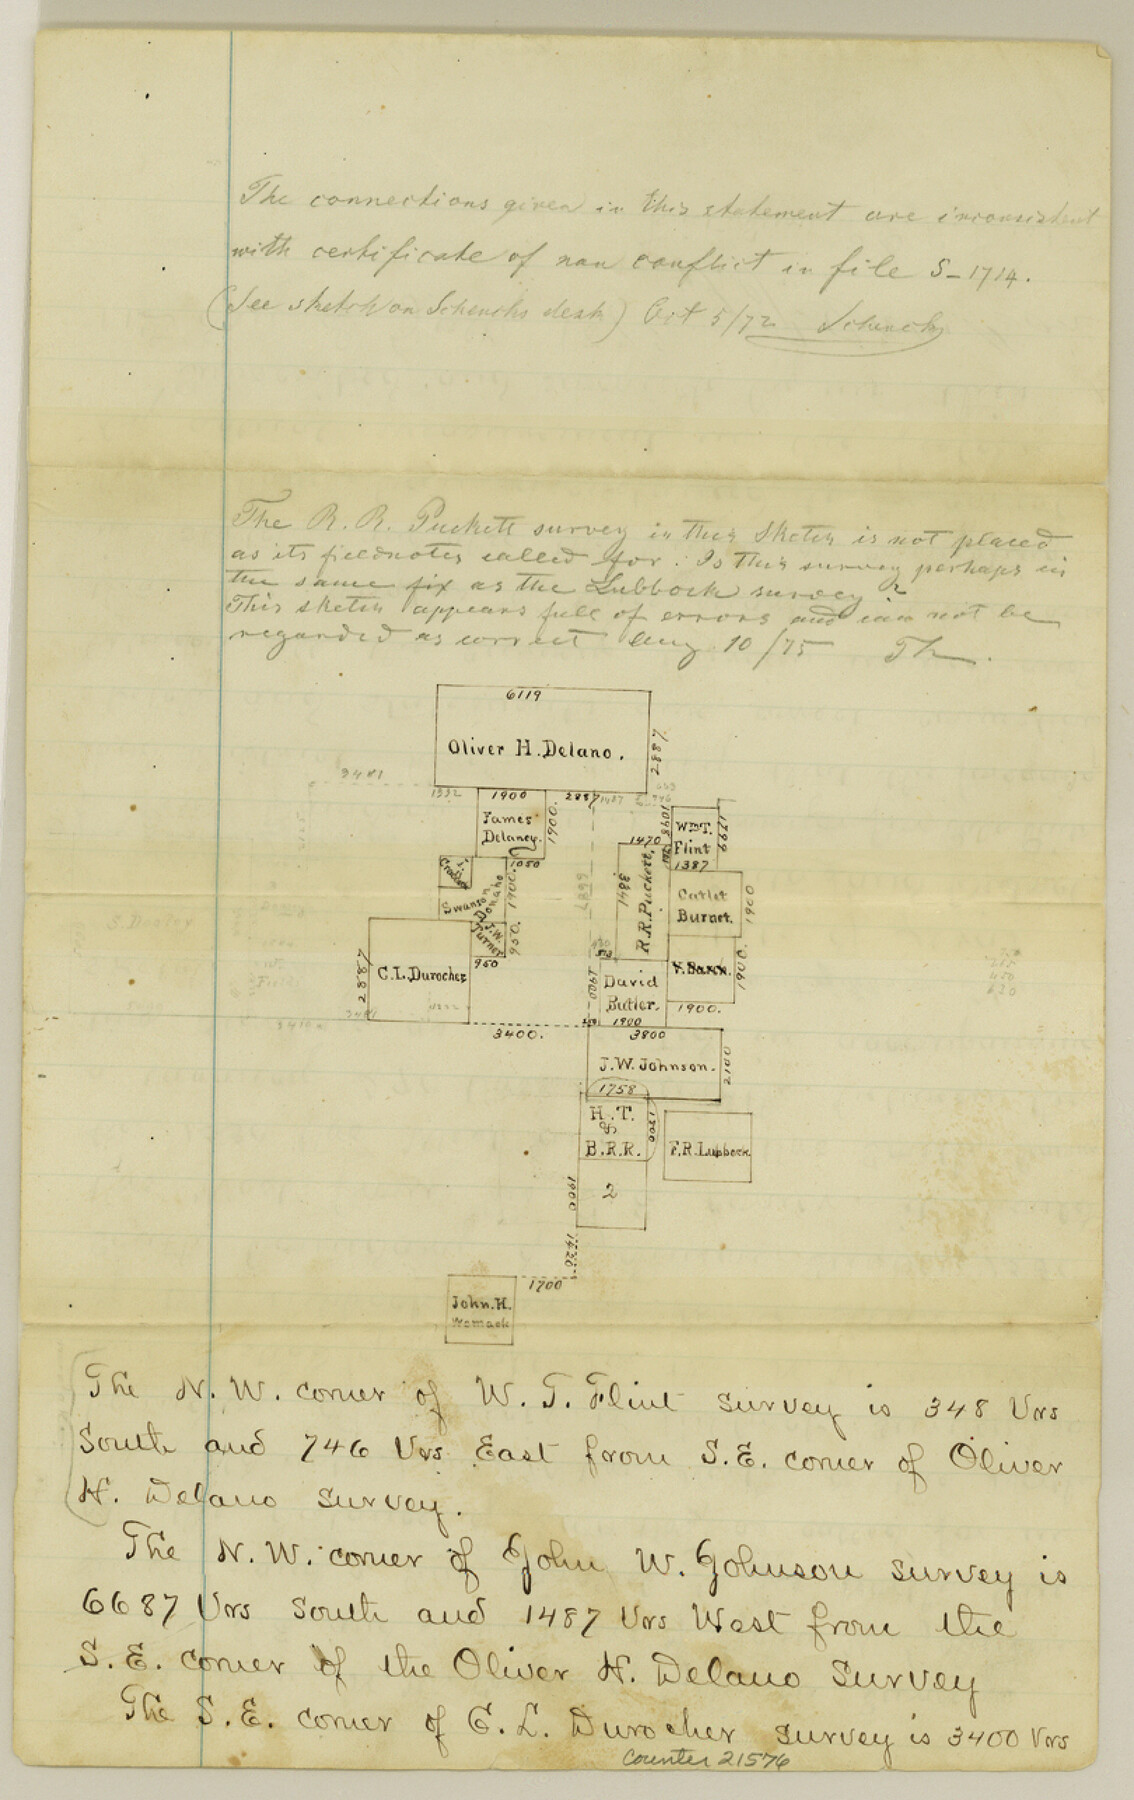 The connections given in this statement are inconsistent
with certificate of non conflict in file S-1714.
(See sketch on Schenchs desk) Oct 5/72 Schench
The R. R. Puckett survey in this sketch is not placed
as its fieldnotes called for. Is this survey perhaps in
the same fix as the Lubbock survey?
This sketch appears full of errors and can not be
regarded as correct Aug 10/75 Th.
6119
Oliver H. Delano.
2887
3481
1332
1900
2887
1487
746
James
Delaney.
1900.
1098
Wm T.
Flint
1799
1470
1387
1050
Swanson
Donaho
1900.
R.R. Puckett,
Catlet
Burnet.
1900
S. Dosler
J.W.
Turner
950.
950
C.L. Durocher
2887
David
Butler.
1900
1900
1900.
1900.
3400.
3800
J.W. Johnson.
2100
1758
H. T.
&
B.R.R.
1900
F.R. Lubbock
2
1900
1426
1700
John. H.
Womack
The N. W. corner of W. T. Flint survey is 348 Vrs
South and 746 Vrs East from S.E. corner of Oliver
H. Delano survey.
The N. W. corner of John W. Johnson survey is
6687 Vrs South and 1487 Vrs West from the
S. E. corner of the Oliver H. Delano survey
The S. E. corner of C. L. Durocher survey is 3400 Vrs
Counter 21576